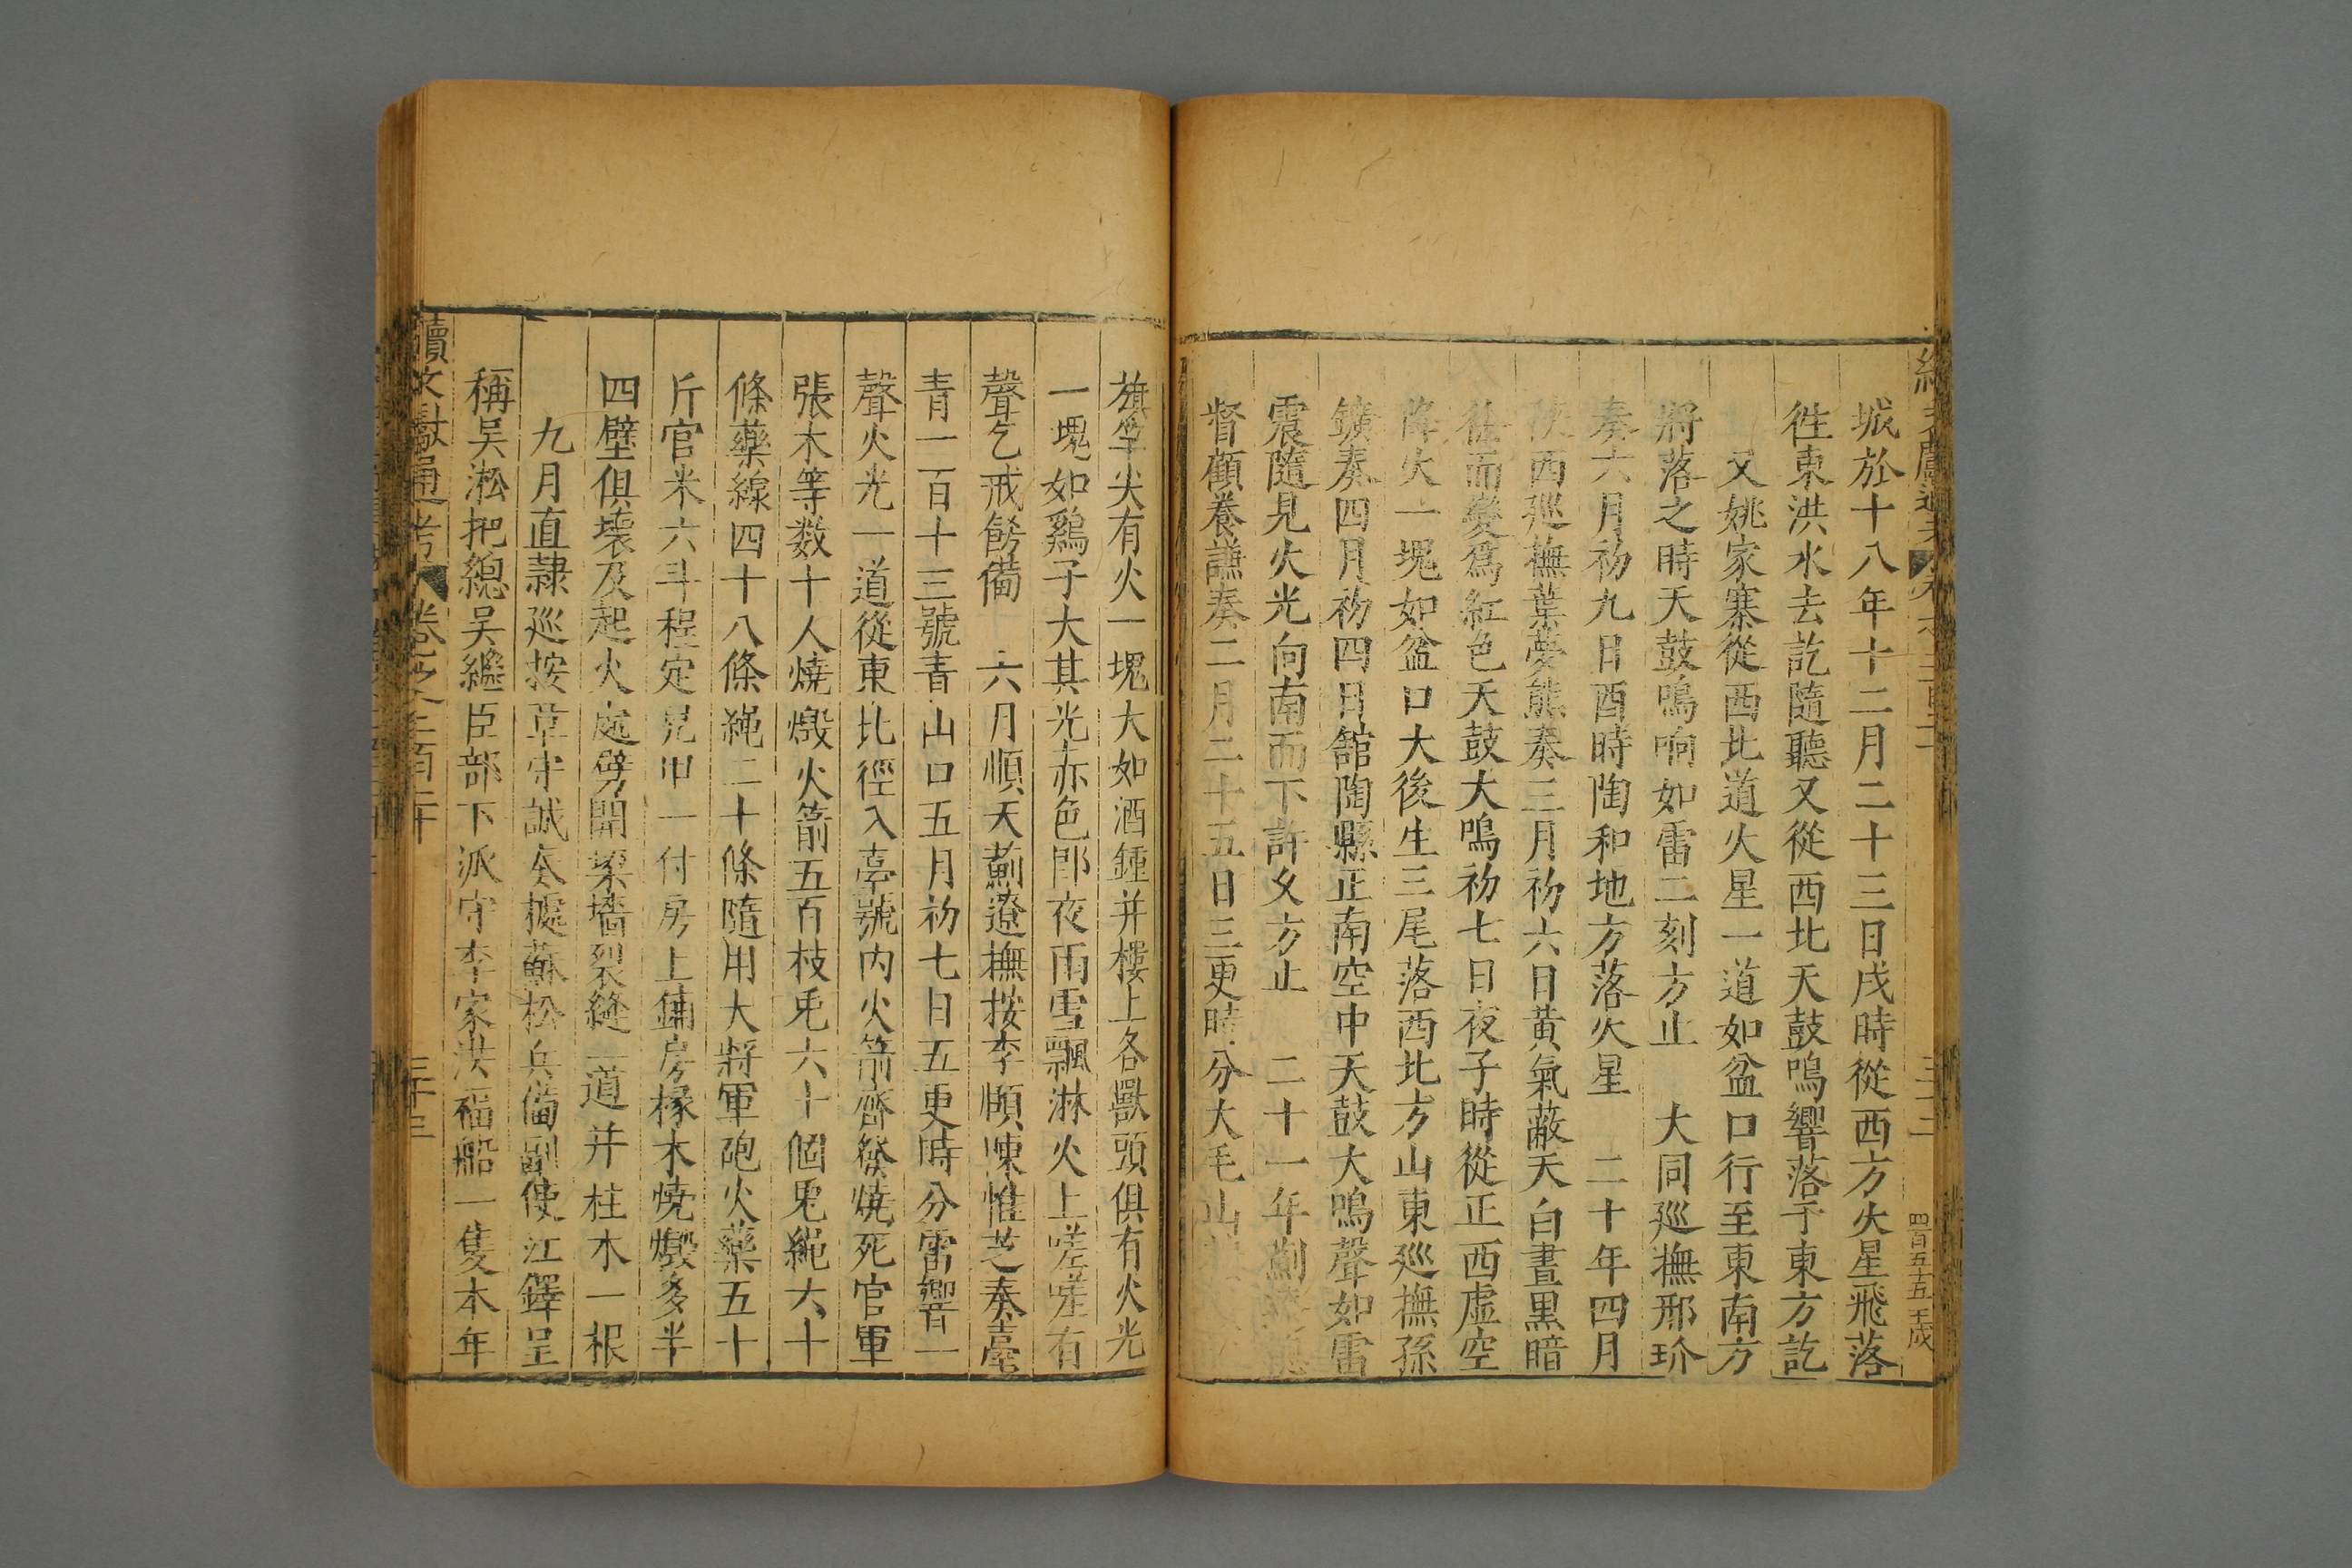 城於十八年十二月二十三日戌時從西方火星飛落
徃東洪水去訖隨聽又從西北天鼓鳴響落于東方訖
又姚家寨從西北道火星一道如盆口行至東南方
將落之時天鼓鳴响如雷二刻方止 大同巡撫邢玠
奏六月初九日酉時陶和地方落火星 二十年四月
陜西巡撫葉夢熊奏三月初六日黃氣蔽天白晝黑暗
徃而變爲紅色天鼓大鳴初七日夜子時從正西虛空
降火一塊如盆口大後生三尾落西北方山東巡撫孫
鑛奏四月初四日舘陶縣正南空中天鼓大鳴聲如雷
震隨見火光向南而下許久方止 二十一年薊
督顧養謙奏二月二十五日三更時分大毛山
旗竿尖有火一塊大如酒鍾并樓上各獸頭俱有火光
一塊如鷄子大其光赤色即夜雨雪飄淋火上嗟嗟有
聲乞戒飭備 六月順天薊遼撫按李頤陳惟芝奏臺
青一百十三號青山口五月初七日五更時分雷響一
聲火光一道從東北徑入亭號內火箭齊發燒死官軍
張木等数十人燒燬火箭五百枝兎六十個兎繩六十
條藥線四十八條繩二十條隨用大將軍砲火藥五十
斤官米六斗程定兄甲一付房上鋪房椽木燒燬多半
四壁俱壞及起火處劈開梁墻裂縫一道并柱木一根
九月直隸巡按草守誠奏據蘇松兵備副使江鐸呈
稱吳淞把總吳繼臣部下派守李家洪福船一隻本年
續文獻通考 卷之二百二十